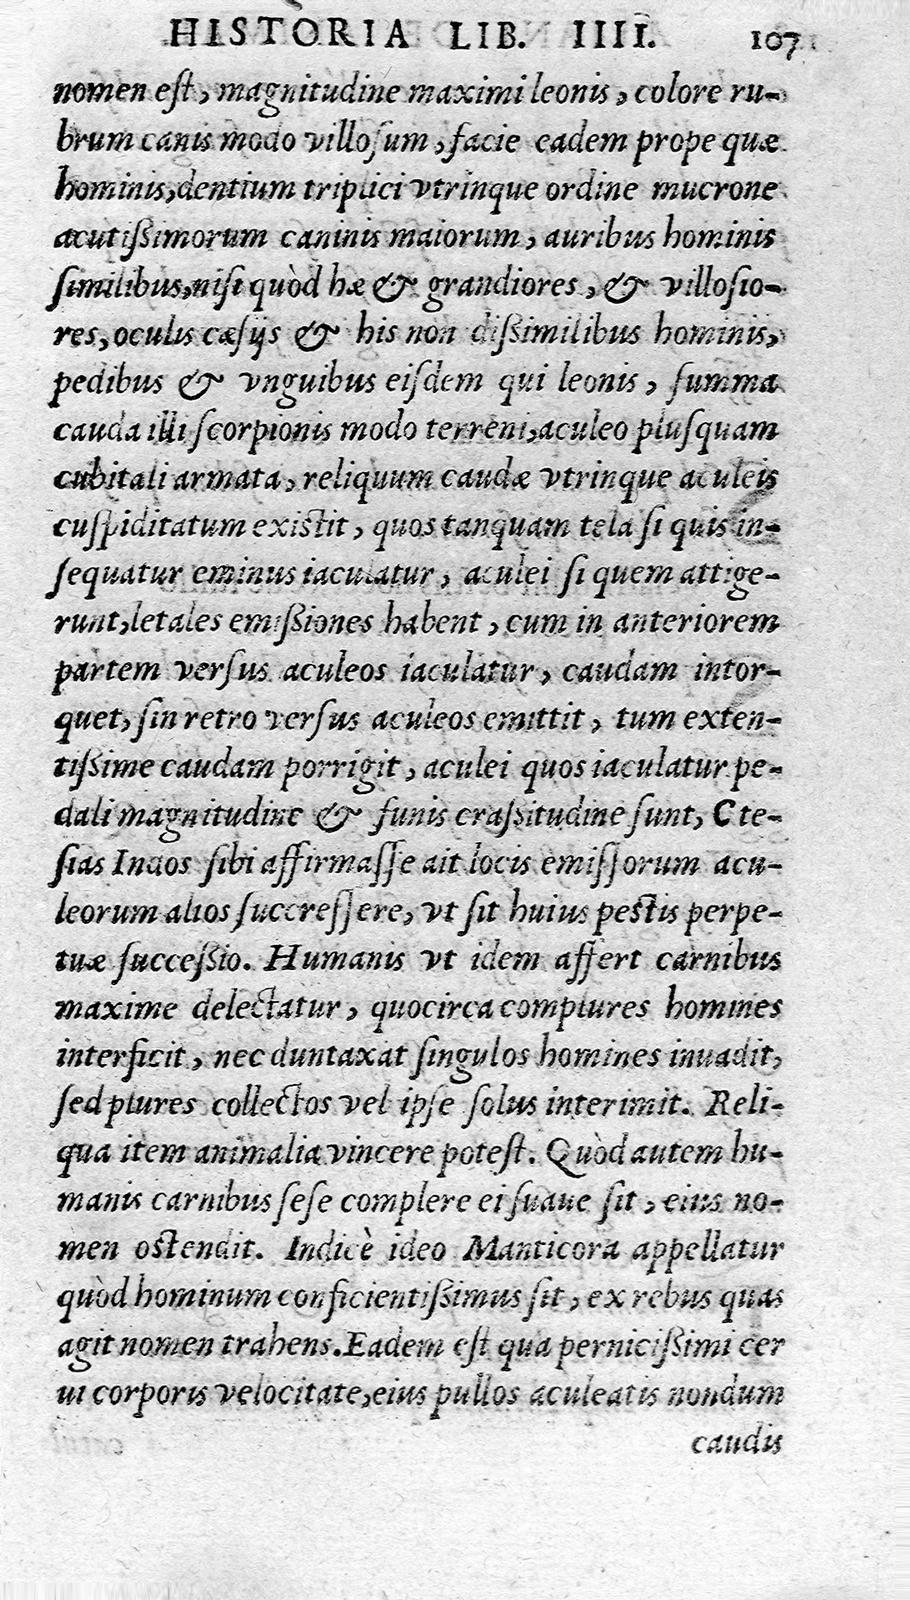 HISTORIA LIB. IIII. 107
nomen eſt, magnitudine maximi leonis, colore ru-
brum canis modo villoſum, facie eadem prope quæ
hominis, dentium triplici vtrinque ordine mucrone
acutißimorum caninis maiorum, auribus hominis
ſimilibus, niſi quòd hæ & grandiores, & villoſio-
res, oculis cæſijs & his non dißimilibus hominis,
pedibus & vnguibus eiſdem qui leonis, ſumma
cauda illi ſcorpionis modo terreni, aculeo pluſquam
cubitali armata, reliquum caudæ vtrinque aculeis
cuſpiditatum existit, quos tanquam tela ſi quis in-
ſequatur eminus iaculatur, aculei ſi quem attige-
runt, letales emißiones habent, cum in anteriorem
partem verſus aculeos iaculatur, caudam intor-
quet, ſin retro verſus aculeos emittit, tum exten-
tißime caudam porrigit, aculei quos iaculatur pe-
dali magnitudine & funis craßitudine ſunt, Cte-
ſias Indos ſibi affirmaſſe ait locis emiſſorum acu-
leorum alios ſuccreſſere, vt ſit huius pestis perpe-
tuæ ſucceßio. Humanis vt idem affert carnibus
maxime delectatur, quocirca complures homines
interficit, nec duntaxat ſingulos homines inuadit,
ſed plures collectos vel ipſe ſolus interimit. Reli-
qua item animalia vincere poteſt. Quòd autem hu-
manis carnibus ſeſe complere ei ſuaue ſit, eius no-
men ostendit. Indicè ideo Manticora appellatur
quòd hominum conficientißimus ſit, ex rebus quas
agit nomen trahens. Eadem eſt qua pernicißimi cer
ui corporis velocitate, eius pullos aculeatis nondum
caudis